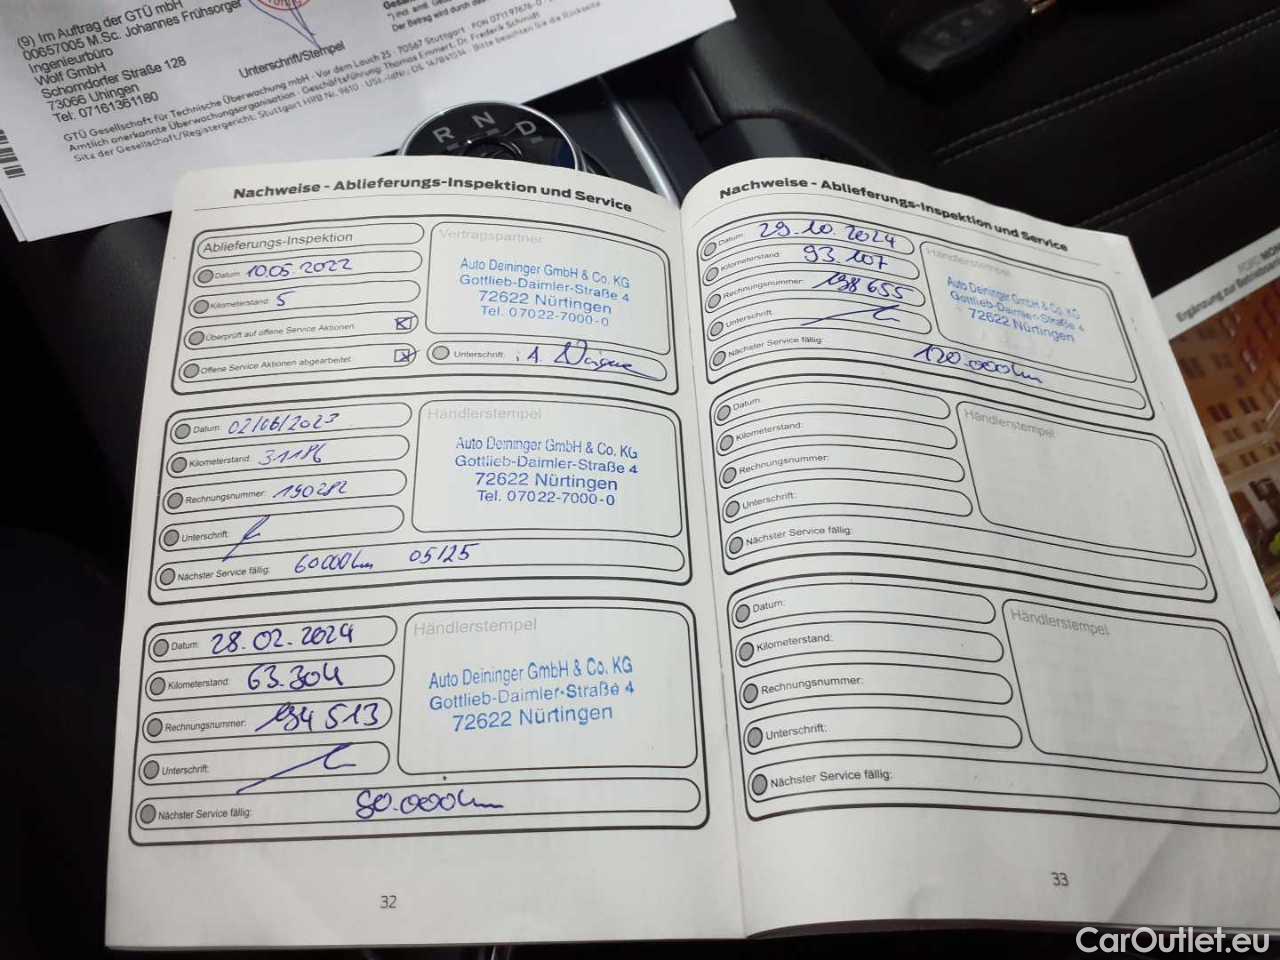 (9) Im Auftrag der GTÜ mbH
00657005 M.Sc. Johannes Frühsorger
Ingenieurbüro
Wolf GmbH
Schorndorfer Straße 128
73066 Uhingen
Tel: 07161361180
Unterschrift/Stempel
GTÜ Gesellschaft für Technische Überwachung mbH · Vor dem Lauch 25 · 70567 Stuttgart · FON 0711 97676-0
Amtlich anerkannte Überwachungsorganisation · Geschäftsführung: Thomas Emmert, Dr. Frederik Schmidt
Sitz der Gesellschaft/Registergericht: Stuttgart HRB Nr. 9610 · USt.-IdNr.: DE · Bitte beachten Sie die Rückseite.
Der Betrag wird durch
R N D
Nachweise - Ablieferungs-Inspektion und Service
Ablieferungs-Inspektion
Datum: 10.05.2022
Kilometerstand: 5
Überprüft auf offene Service Aktionen:
Offene Service Aktionen abgearbeitet:
Vertragspartner
Auto Deininger GmbH & Co. KG
Gottlieb-Daimler-Straße 4
72622 Nürtingen
Tel. 07022-7000-0
Unterschrift:
Datum: 02/06/2023
Kilometerstand: 31186
Rechnungsnummer: 190282
Unterschrift:
Nächster Service fällig: 60000km 05/25
Händlerstempel
Auto Deininger GmbH & Co. KG
Gottlieb-Daimler-Straße 4
72622 Nürtingen
Tel. 07022-7000-0
Datum: 28.02.2024
Kilometerstand: 63.304
Rechnungsnummer: 194513
Unterschrift:
Nächster Service fällig: 80.000km
Händlerstempel
Auto Deininger GmbH & Co. KG
Gottlieb-Daimler-Straße 4
72622 Nürtingen
32
Nachweise - Ablieferungs-Inspektion und Service
Datum: 29.10.2024
Kilometerstand: 93.107
Rechnungsnummer: 198655
Unterschrift:
Nächster Service fällig: 120.000km
Händlerstempel
Auto Deininger GmbH & Co. KG
Gottlieb-Daimler-Straße 4
72622 Nürtingen
Datum:
Kilometerstand:
Rechnungsnummer:
Unterschrift:
Nächster Service fällig:
Händlerstempel
Datum:
Kilometerstand:
Rechnungsnummer:
Unterschrift:
Nächster Service fällig:
Händlerstempel
33
Ergänzung zur
CarOutlet.eu